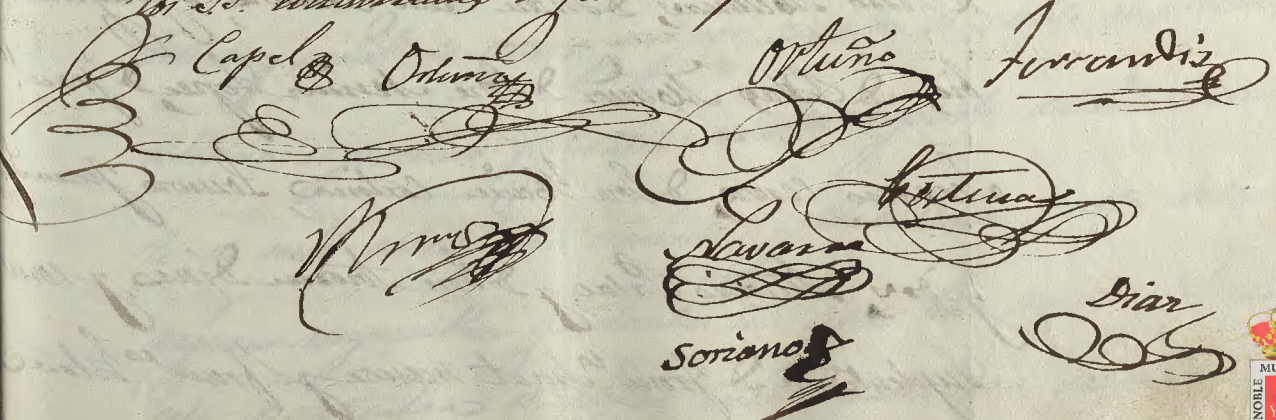 los S.S.
Capel Ortuño Ortuño Ferrandiz
Fortuna
Navarro
Diaz
Soriano
NOBLE MU